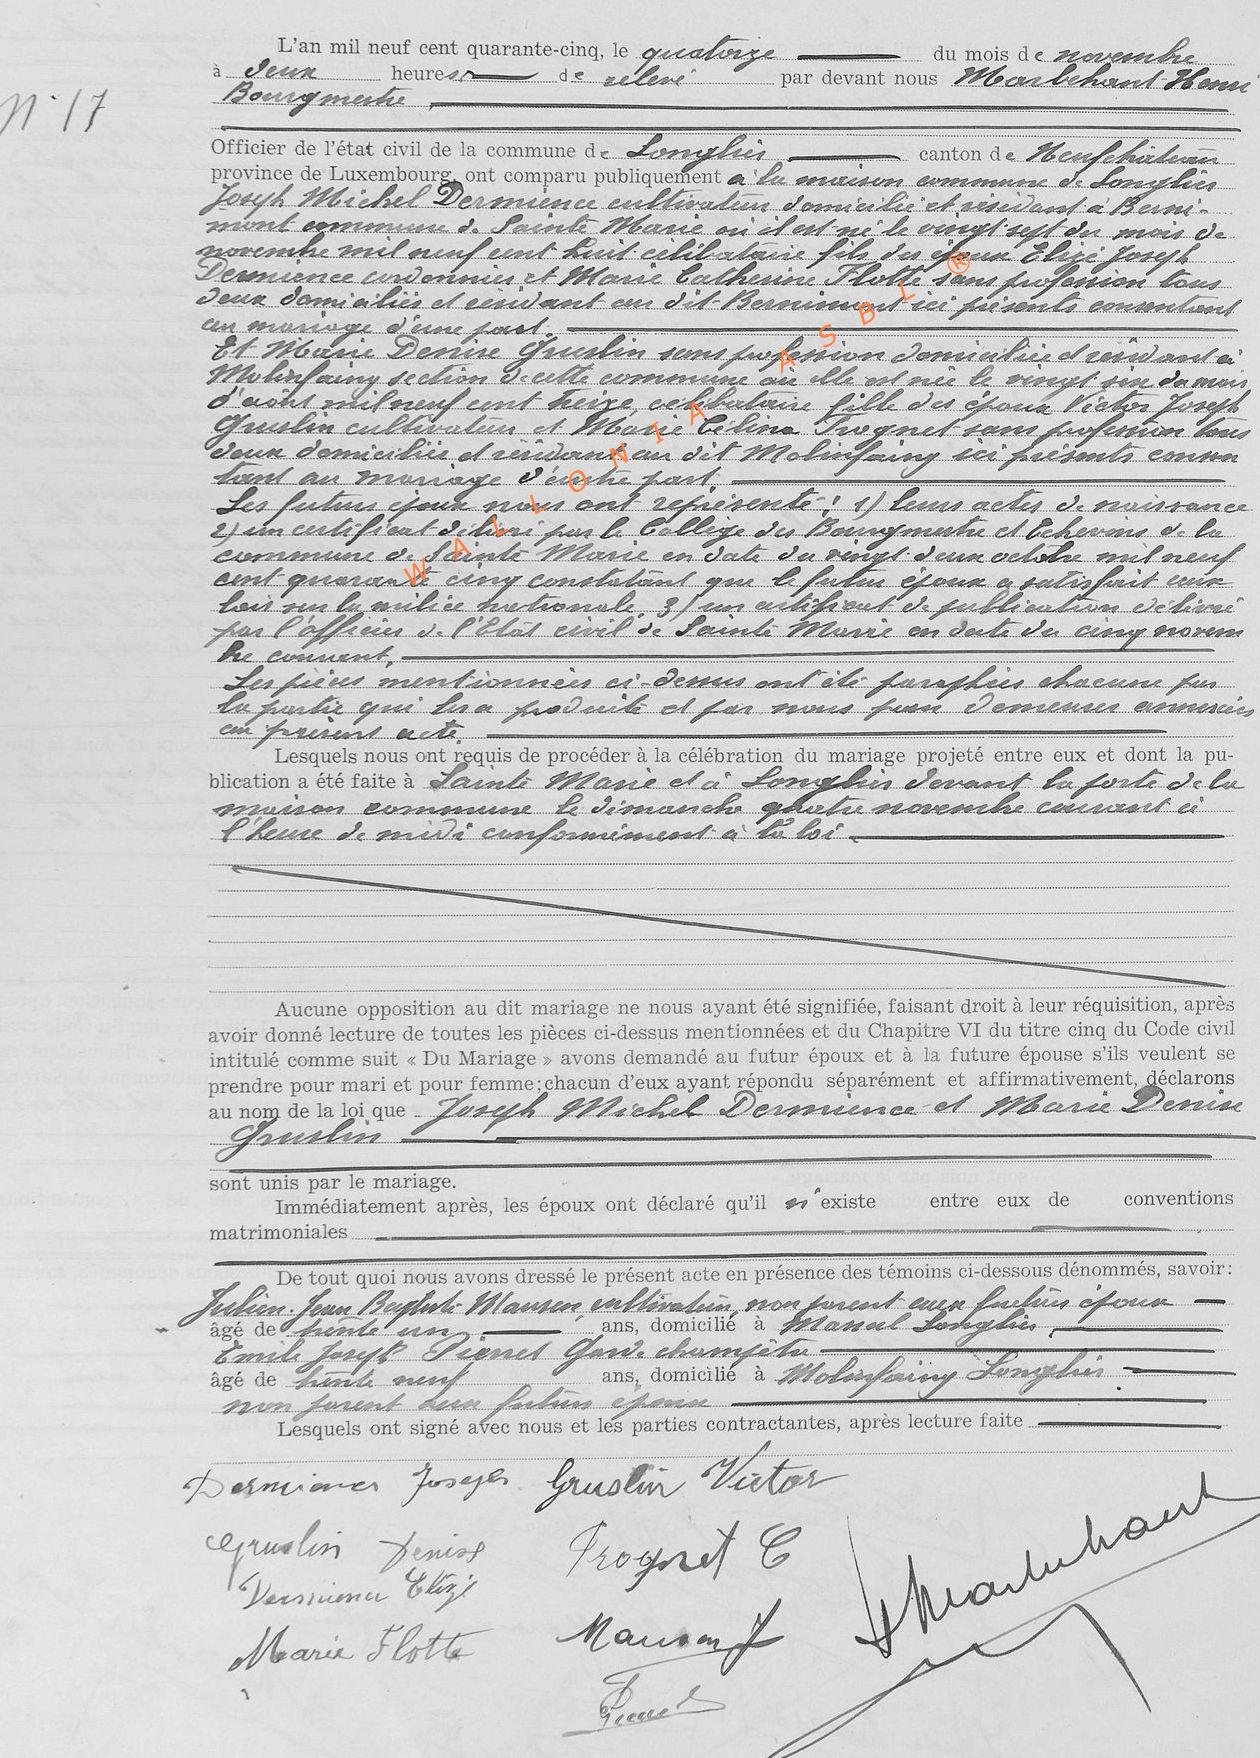 L'an mil neuf cent quarante-cinq, le quatorze du mois de novembre
à deux heures de relevé par devant nous Marbehant Henri
Bourgmestre
N° 17
Officier de l'état civil de la commune de Longlier canton de Neufchâteau
province de Luxembourg, ont comparu publiquement à la maison commune de Longlier
Joseph Michel Dermience cultivateur domicilié et résidant à Berni-
mont commune de Sainte Marie où il est né le vingt sept du mois de
novembre mil neuf cent huit célibataire fils des époux Elizé Joseph
Dermience cordonnier et Marie Catherine Flotte sans profession tous
deux domiciliés et résidant au dit Bernimont ici présents consentant
au mariage d'une part.
Et Marie Denise Gruslin sans profession domiciliée et résidant à
Molinfaing section de cette commune où elle est née le vingt six du mois
d'août mil neuf cent treize, célibataire fille des époux Victor Joseph
Gruslin cultivateur et Marie Célina Prognet sans profession tous
deux domiciliés et résidant au dit Molinfaing ici présents consen
tant au mariage d'autre part.
Les futurs époux nous ont représenté : 1) leurs actes de naissance
2) un certificat délivré par le Collège des Bourgmestre et Echevins de la
commune de Sainte Marie en date du vingt deux octobre mil neuf
cent quarante cinq constatant que le futur époux a satisfait aux
lois sur la milice nationale. 3) un certificat de publication délivré
par l'officier de l'Etat civil de Sainte Marie en date du cinq novem
bre courant.
Les pièces mentionnées ci-dessus ont été paraphées chacune par
la partie qui les a produite et par nous pour demeurer annexées
au présent acte.
Lesquels nous ont requis de procéder à la célébration du mariage projeté entre eux et dont la pu-
blication a été faite à Sainte Marie et à Longlier devant la porte de la
maison commune le dimanche quatre novembre courant à
l'heure de midi conformément à la loi.
Aucune opposition au dit mariage ne nous ayant été signifiée, faisant droit à leur réquisition, après
avoir donné lecture de toutes les pièces ci-dessus mentionnées et du Chapitre VI du titre cinq du Code civil
intitulé comme suit « Du Mariage » avons demandé au futur époux et à la future épouse s'ils veulent se
prendre pour mari et pour femme; chacun d'eux ayant répondu séparément et affirmativement, déclarons
au nom de la loi que Joseph Michel Dermience et Marie Denise
Gruslin
sont unis par le mariage.
Immédiatement après, les époux ont déclaré qu'il n'existe entre eux de conventions
matrimoniales
De tout quoi nous avons dressé le présent acte en présence des témoins ci-dessous dénommés, savoir:
Julien Jean Baptiste Manson, cultivateur, non parent aux futurs époux
âgé de trente un ans, domicilié à Massul Longlier,
Emile Joseph Pierret Garde champêtre
âgé de trente neuf ans, domicilié à Molinfaing Longlier
non parent aux futurs époux
Lesquels ont signé avec nous et les parties contractantes, après lecture faite
Dermience Joseph Gruslin Victor
Gruslin Denise Prognet C
Dermience Elizé
Marie Flotte Manson J
H Marbehant
WALLONIA ASBL ®